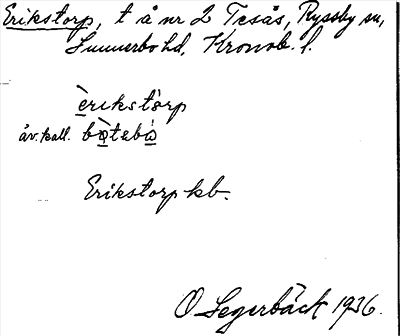 Erikstorp, t å nr 2 Tesås, Ryssby sn,
Sunnerbo hd, Kronob. l.
èrikstòrp
äv. kall. bò̱tebo̱
Erikstorp kb.
O Segerbäck 1936.